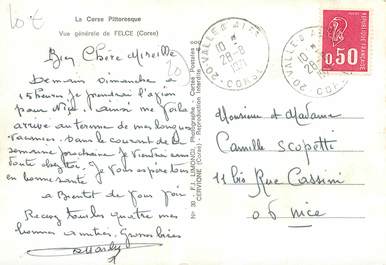 10 €
La Corse Pittoresque
Vue générale de FELCE (Corse)
Bien Chère Mireille
20
Demain dimanche à
15 heures je prendrai l'avion
pour Nice. ainsi me voila
arrivé au terme de mes longues
vacances. Dans le courant de la
semaine prochaine je viendrai sans
doute chez toi. Je vous espère tous
en bonne santé
à Bientôt de vous voir
Recevez tous les quatre mes
bonnes amitiés. Grosses bises
N° 30 - F.J. LIMONGI, Photographe - Cartes Postales
CERVIONE (Corse) - Reproduction Interdite
20 VALLE D'ALE
10 H
28-8
1971
CORSE
20 VALLE D'ALE
10
28-8
CORSE
0,50
Monsieur et Madame
Camille Scopetti
11 bis Rue Cassini
06 Nice